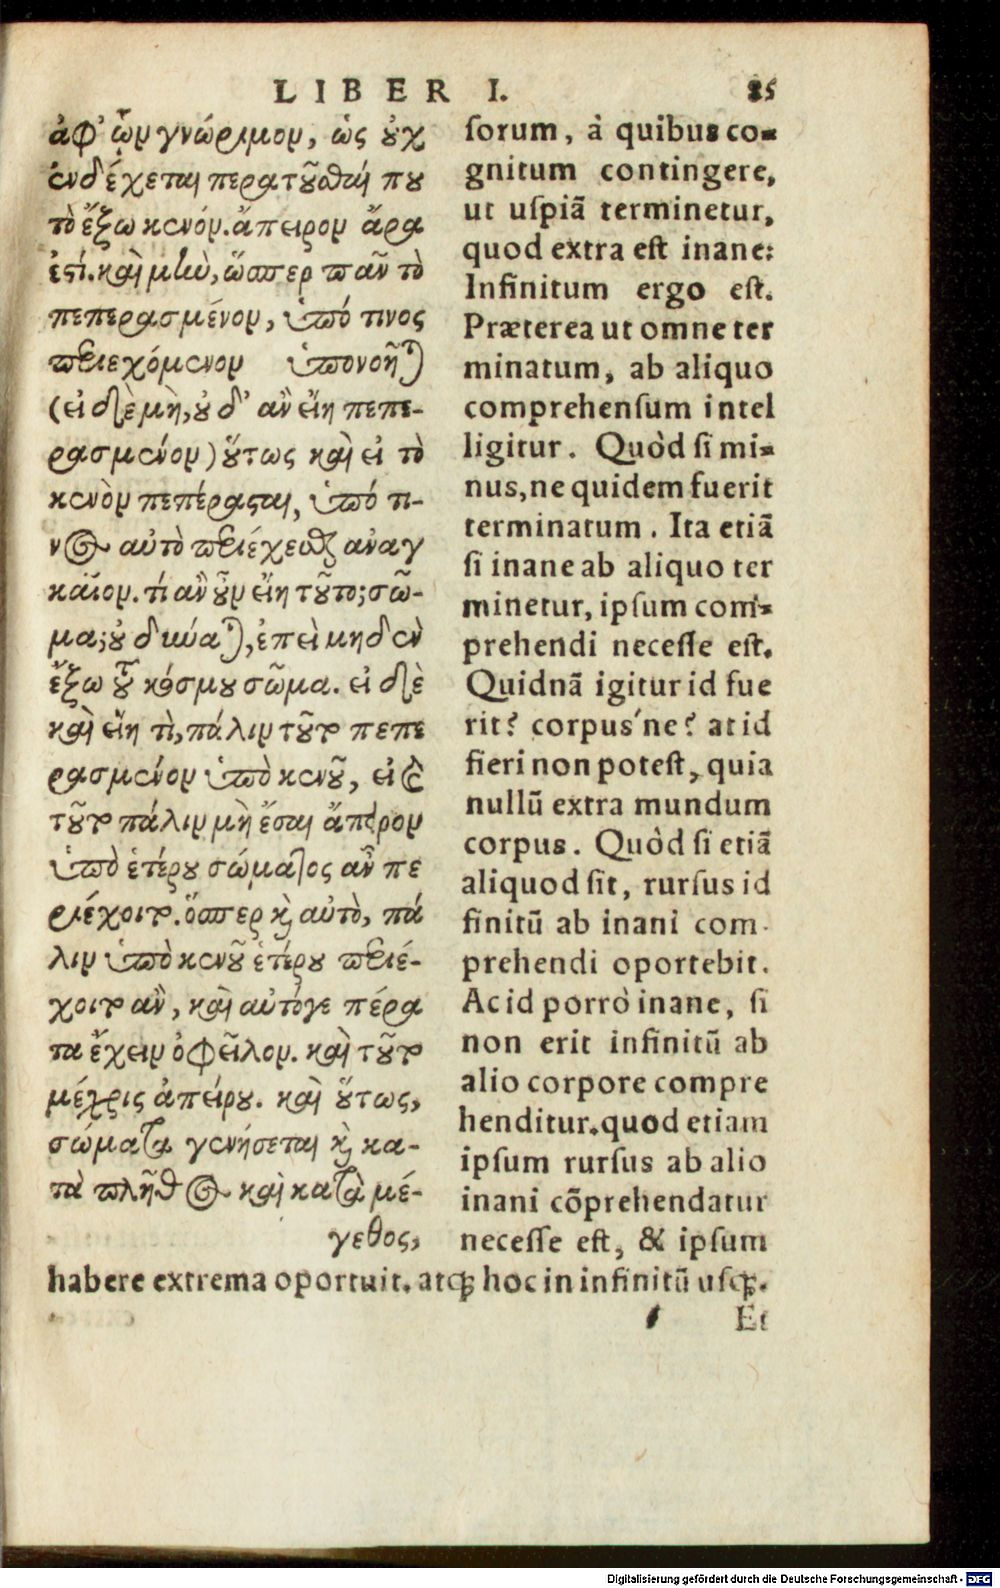 LIBER I. 85
ἀφ' ὧν γνώριμον, ὡς οὐχ
ἐνδέχεται περατοῦσθαί που
τὸ ἔξω κενόν. ἄπειρον ἄρα
ἐστί. καὶ μὴν, ὥσπερ πᾶν τὸ
πεπερασμένον, ὑπό τινος
περιεχόμενον ὑπονοῆται
(εἰ δὲ μὴ, οὐδ' ἂν εἴη πεπε-
ρασμένον) οὕτως καὶ εἰ τὸ
κενὸν πεπέρασται, ὑπό τι-
νος αὐτὸ περιέχεσθαι ἀναγ
καῖον. τί ἂν οὖν εἴη τοῦτο; σῶ-
μα; οὐ δύναται, ἐπεὶ μηδὲν
ἔξω τοῦ κόσμου σῶμα. εἰ δὲ
καὶ εἴη τὶ, πάλιν τοῦτο πεπε
ρασμένον ὑπὸ κενοῦ, εἰ δὲ
τοῦτο πάλιν μὴ ἔσται ἄπειρον
ὑπὸ ἑτέρου σώματος ἂν πε
ριέχοιτο. ὅσπερ καὶ αὐτὸ, πά
λιν ὑπὸ κενοῦ ἑτέρου περιέ-
χοιτο ἂν, καὶ αὐτόγε πέρα
τα ἔχειν ὀφεῖλον. καὶ τοῦτο
μέχρις ἀπείρου. καὶ οὕτως,
σώματα γενήσεται καὶ κα-
τὰ πλῆθος καὶ κατὰ μέ-
γεθος,
sorum, à quibus co-
gnitum contingere,
ut uspiã terminetur,
quod extra est inane:
Infinitum ergo est.
Præterea ut omne ter
minatum, ab aliquo
comprehensum intel
ligitur. Quòd si mi-
nus, ne quidem fuerit
terminatum. Ita etiã
si inane ab aliquo ter
minetur, ipsum com-
prehendi necesse est.
Quidnã igitur id fue
rit? corpus'ne? at id
fieri non potest, quia
nullũ extra mundum
corpus. Quòd si etiã
aliquod sit, rursus id
finitũ ab inani com-
prehendi oportebit.
Ac id porrò inane, si
non erit infinitũ ab
alio corpore compre
henditur. quod etiam
ipsum rursus ab alio
inani cõprehendatur
necesse est, & ipsum
habere extrema oportuit. atq; hoc in infinitũ usq;.
Et
Digitalisierung gefördert durch die Deutsche Forschungsgemeinschaft - DFG